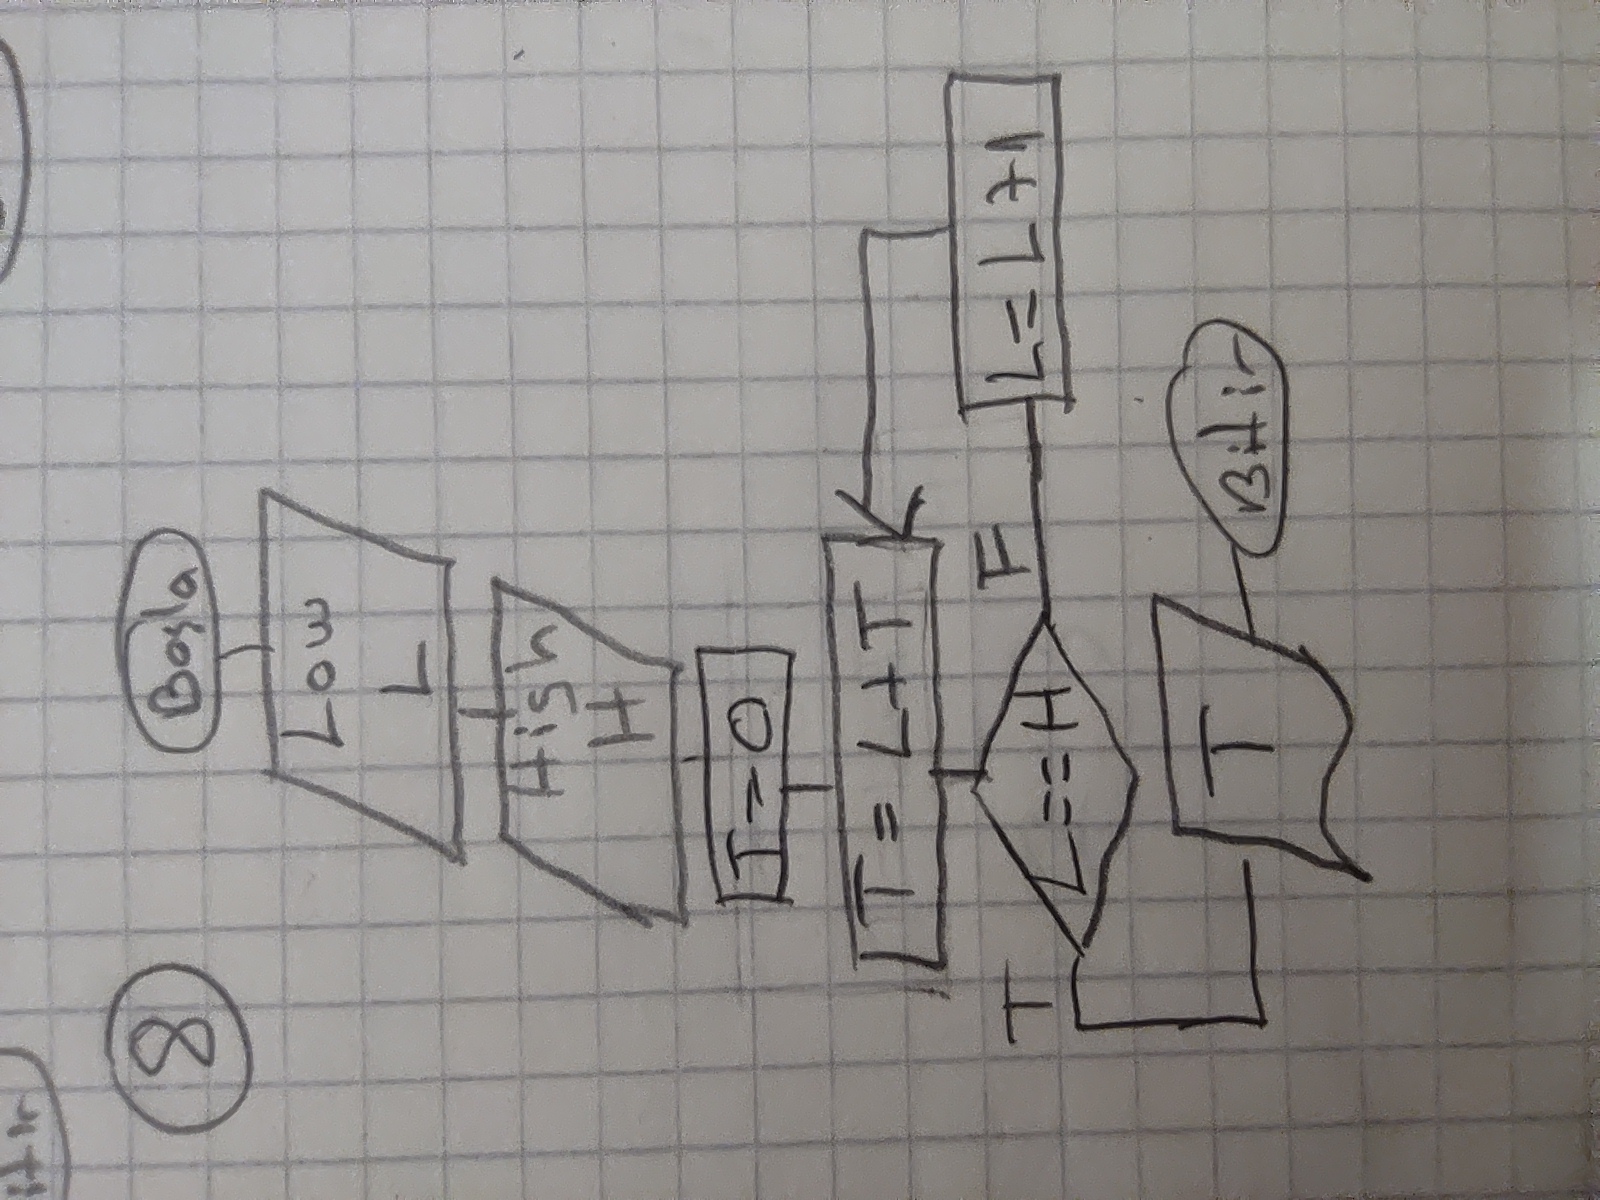 itir
8
Başla
Low
L
High
H
T = 0
T = L+T
T
L == H
F
L = L +1
T
Bitir